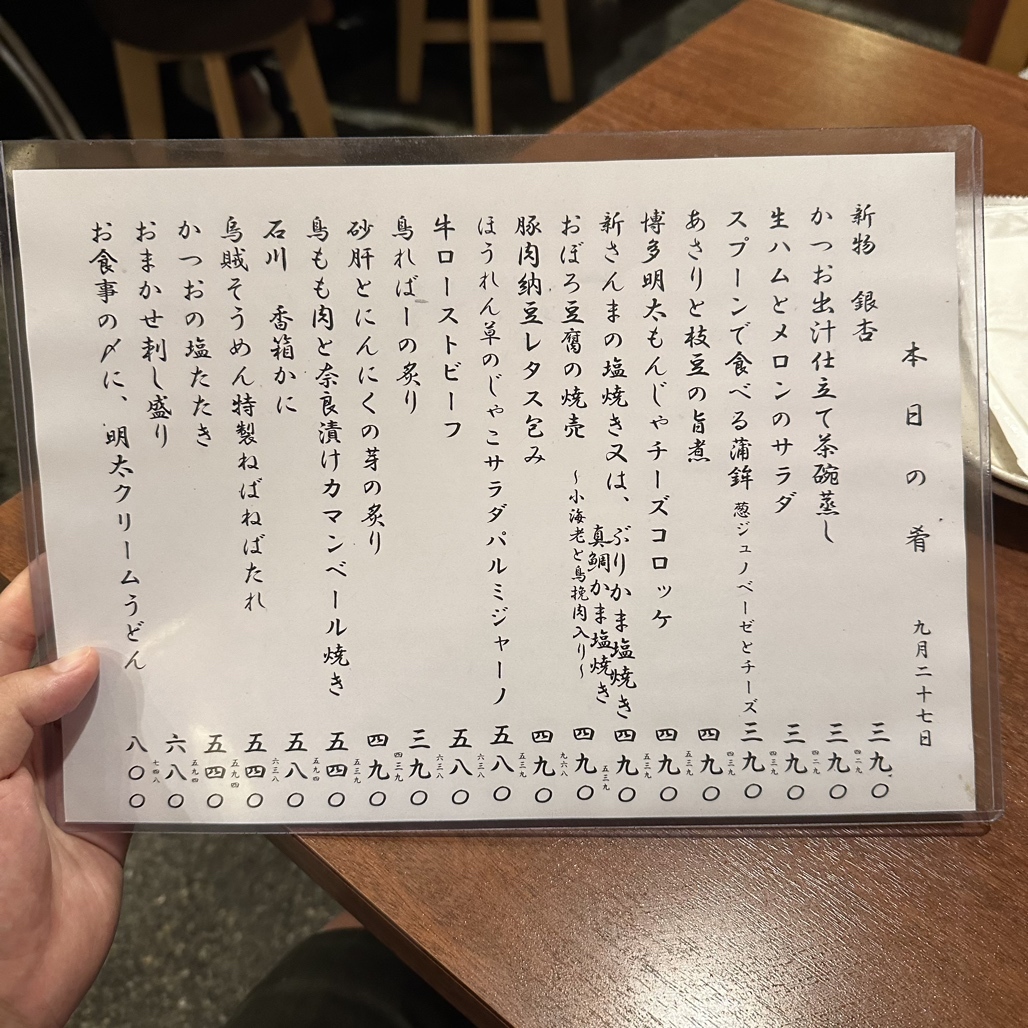 本日の肴　九月二十七日
新物　銀杏　三九〇　四二九
かつお出汁仕立て茶碗蒸し　三九〇　四二九
生ハムとメロンのサラダ　三九〇　四三九
スプーンで食べる蒲鉾　葱ジュノベーゼとチーズ　三九〇　四三九
あさりと枝豆の旨煮　四九〇　五三九
博多明太もんじゃチーズコロッケ　四九〇　五三九
新さんまの塩焼き又は、ぶりかま塩焼き
真鯛かま塩焼き　四九〇　五三九
おぼろ豆腐の焼売　～小海老と鳥挽肉入り～　四九〇　九六八
豚肉納豆レタス包み　四九〇　五三九
ほうれん草のじゃこサラダパルミジャーノ　五八〇　六三八
牛ローストビーフ　五八〇　六三八
鳥ればーの炙り　三九〇　四三九
砂肝とにんにくの芽の炙り　四九〇　五三九
鳥もも肉と奈良漬けカマンベール焼き　五四〇　五九四
石川　香箱かに　五八〇　六三八
烏賊そうめん特製ねばねばたれ　五四〇　五九四
かつおの塩たたき　五四〇　五九四
おまかせ刺し盛り　六八〇　七四八
お食事の〆に、明太クリームうどん　八〇〇